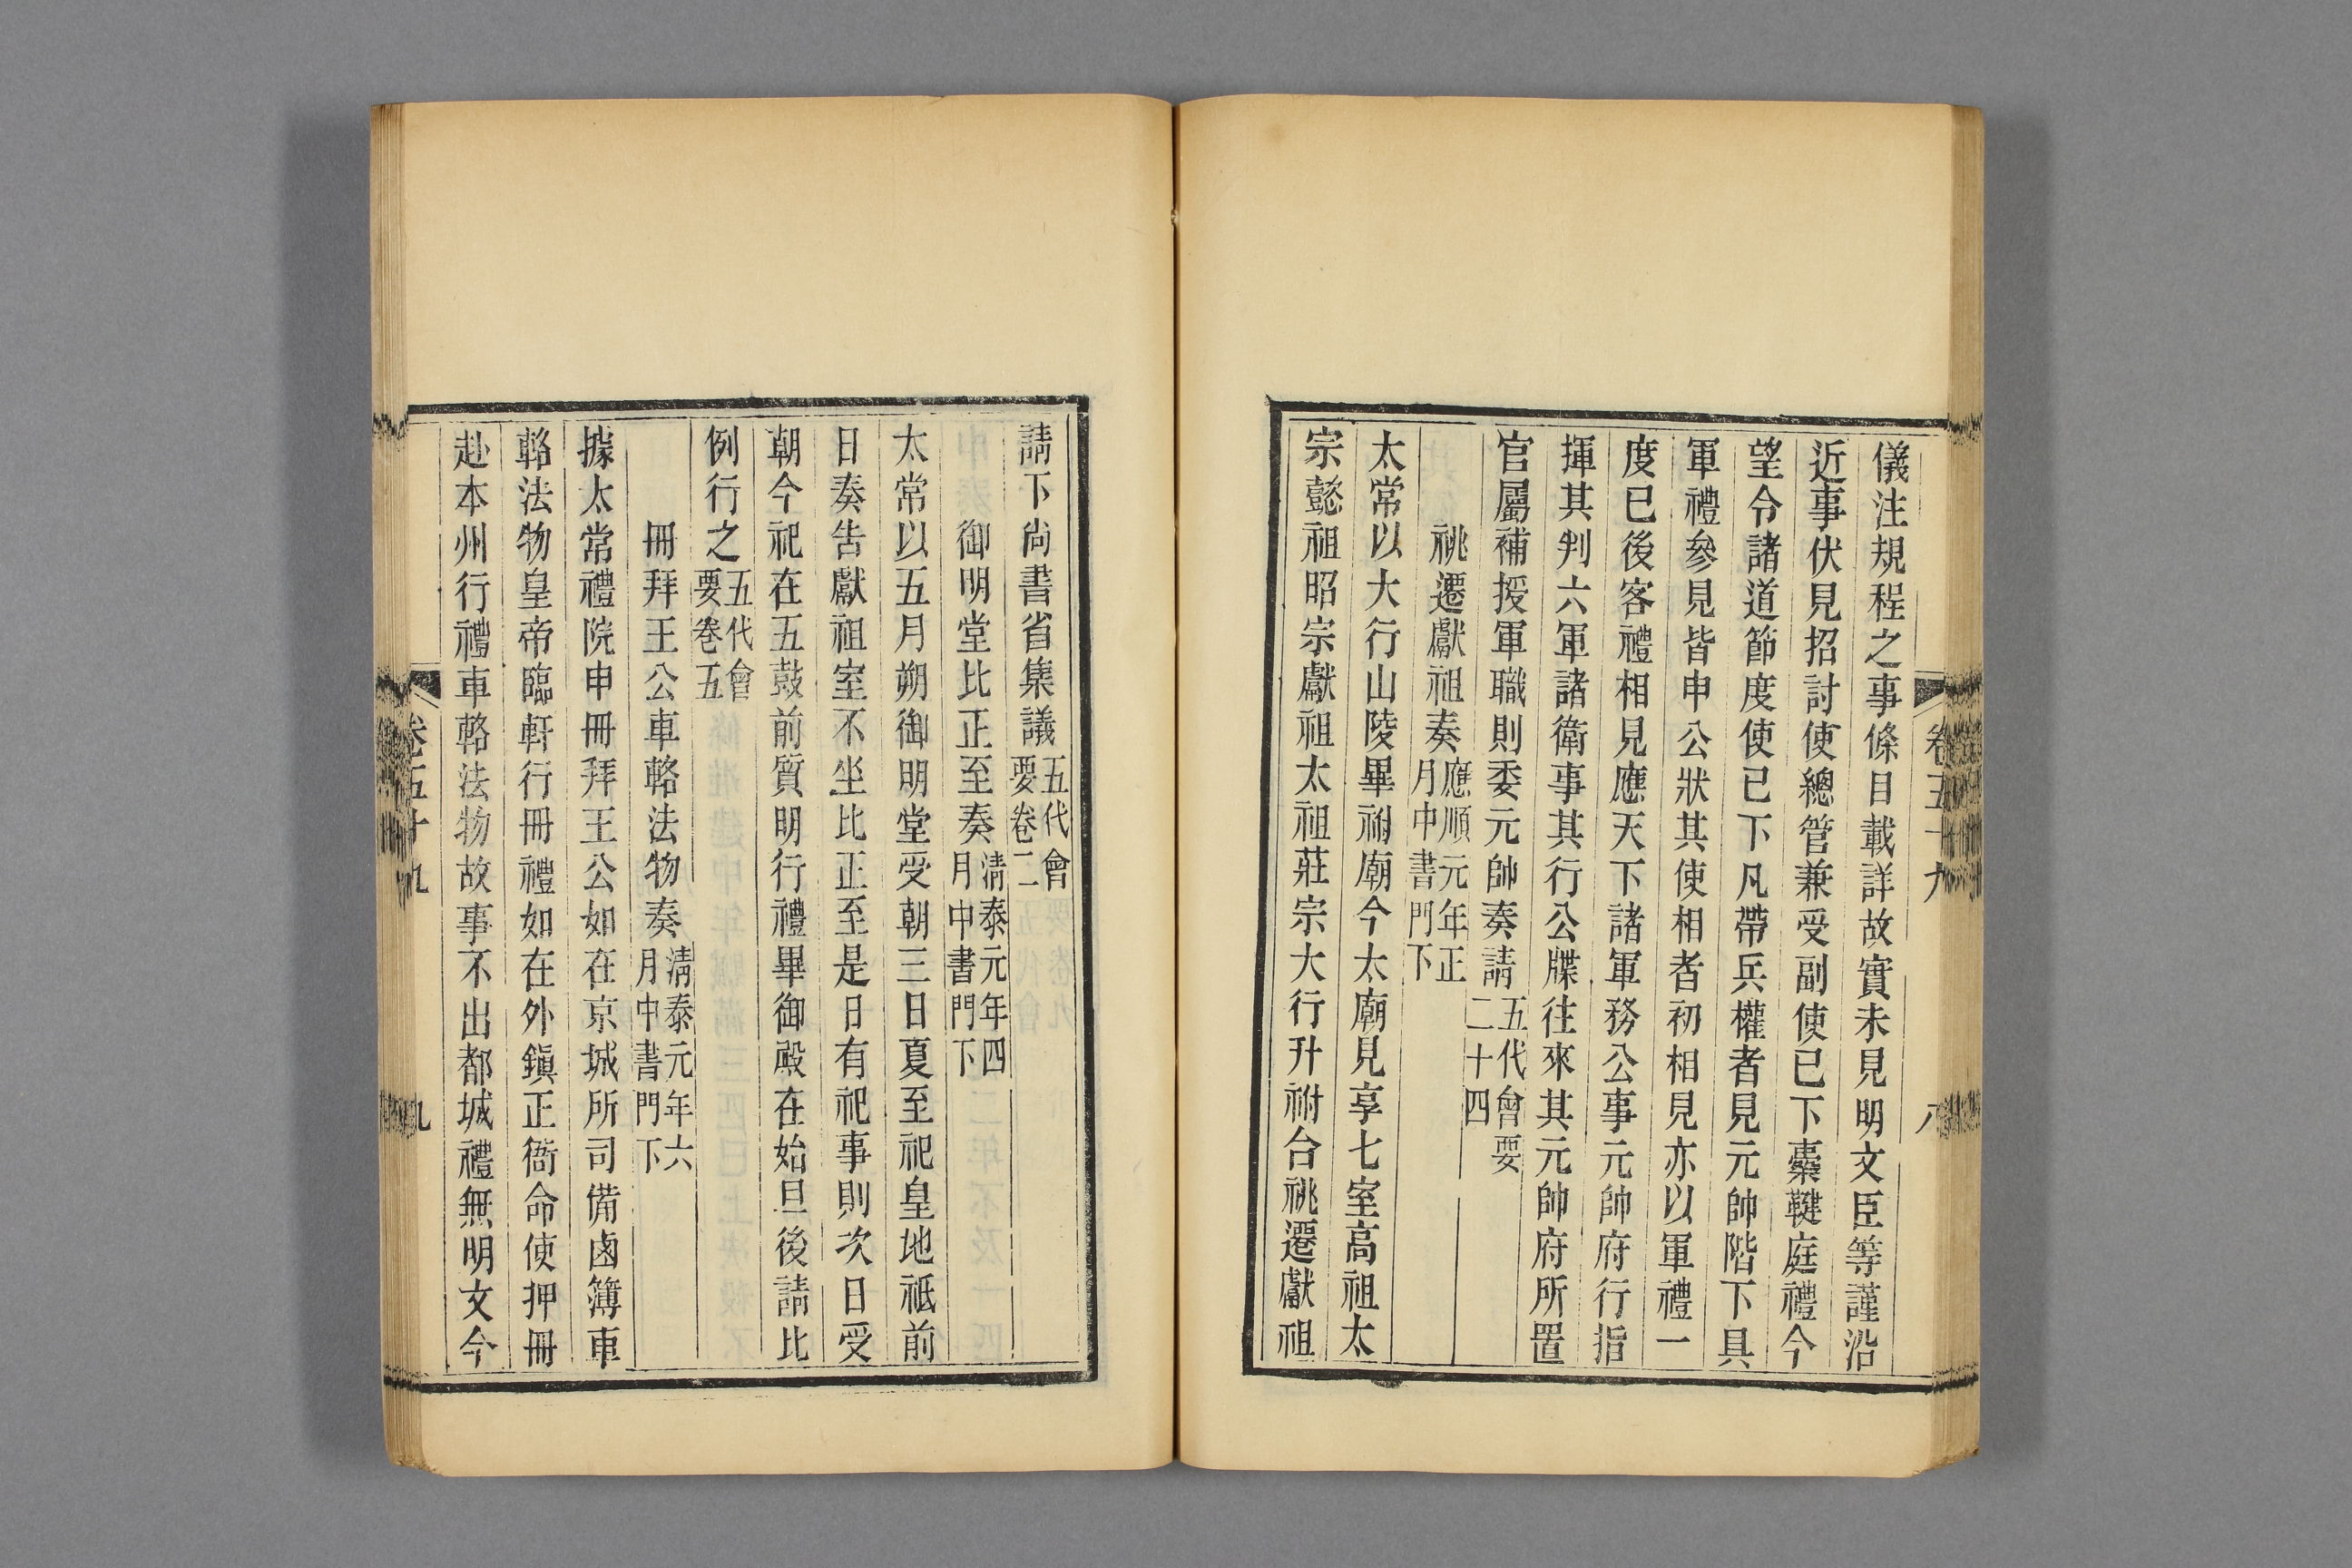 儀注規程之事條目載詳故實未見明文臣等謹沿
近事伏見招討使總管兼受副使已下橐鞬庭禮今
望令諸道節度使已下凡帶兵權者見元帥階下具
軍禮參見皆申公狀其使相者初相見亦以軍禮一
度已後客禮相見應天下諸軍務公事元帥府行指
揮其判六軍諸衛事其行公牒往來其元帥府所置
官屬補授軍職則委元帥奏請五代會要二十四
祧遷獻祖奏應順元年正月中書門下
太常以大行山陵畢祔廟今太廟見享七室高祖太
宗懿祖昭宗獻祖太祖莊宗大行升祔合祧遷獻祖
請下尚書省集議五代會要卷二
御明堂比正至奏清泰元年四月中書門下
太常以五月朔御明堂受朝三日夏至祀皇地祇前
日奏告獻祖室不坐比正至是日有祀事則次日受
朝今祀在五鼓前質明行禮畢御殿在始旦後請比
例行之五代會要卷五
冊拜王公車輅法物奏清泰元年六月中書門下
據太常禮院申冊拜王公如在京城所司備鹵簿車
輅法物皇帝臨軒行冊禮如在外鎮正衙命使押冊
赴本州行禮車輅法物故事不出都城禮無明文今
卷五十九
九